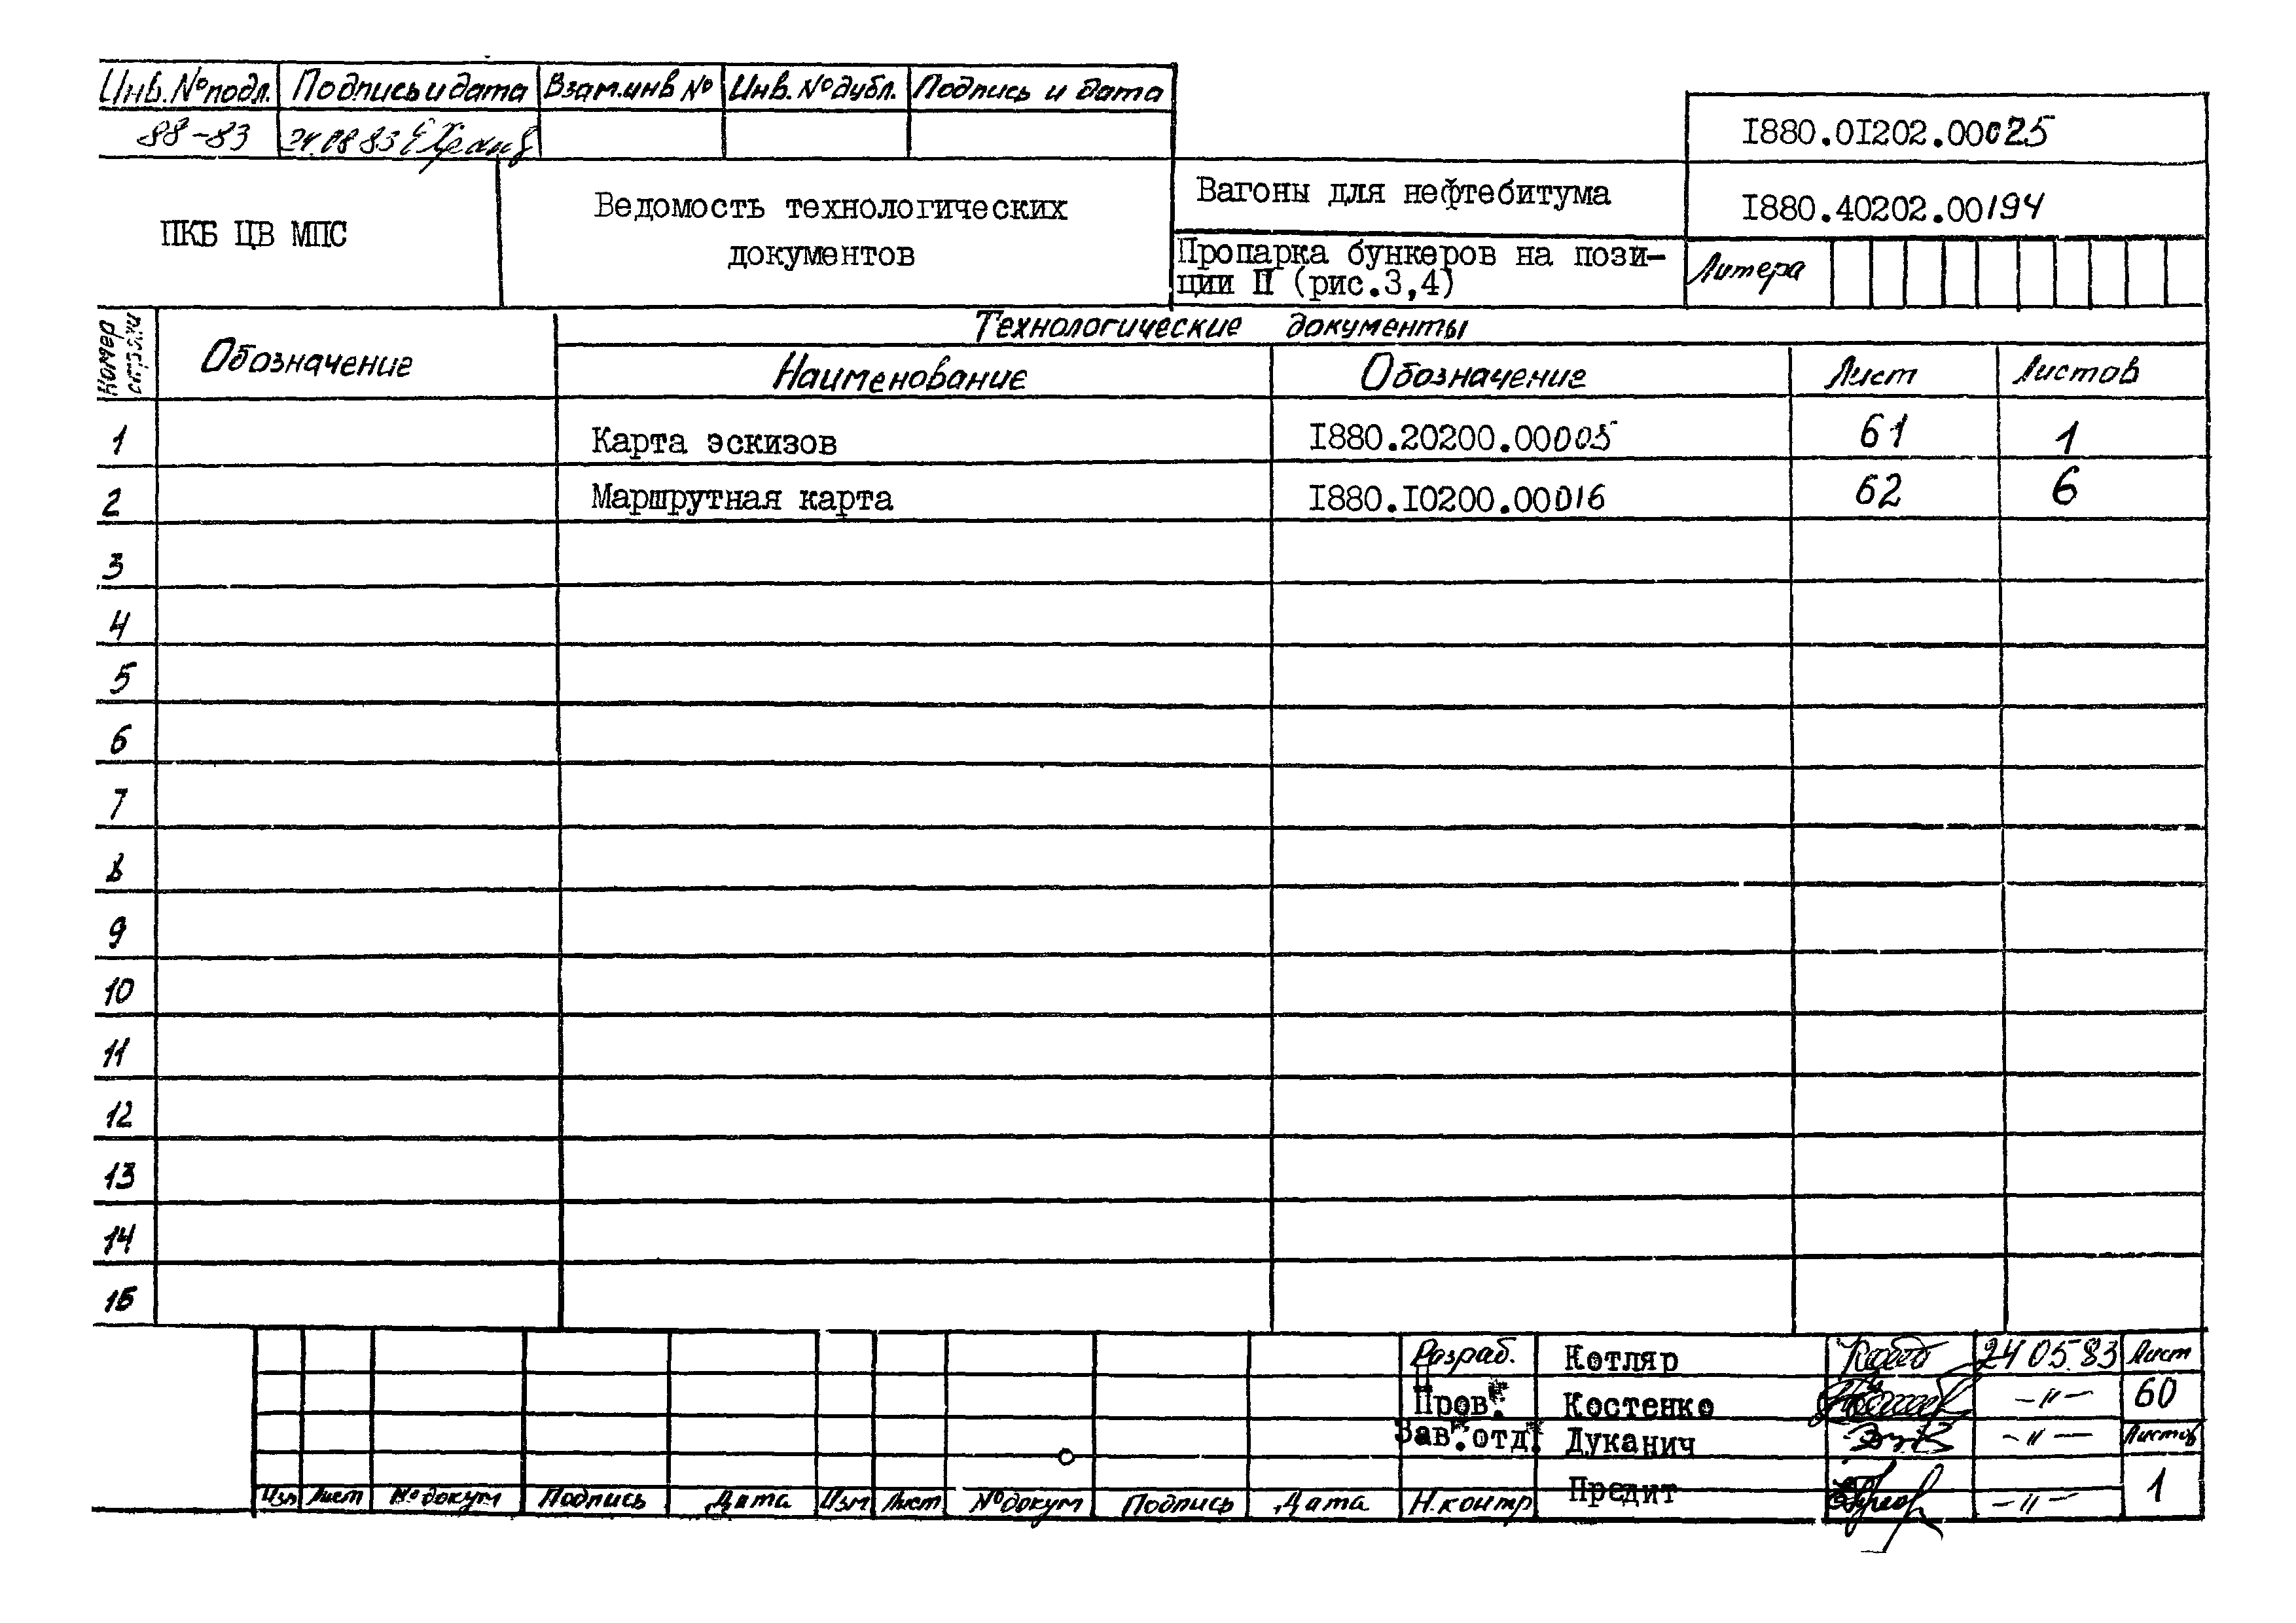 Инв.№подл. Подпись и дата Взам.инв № Инв.№дубл. Подпись и дата
88-83
I880.0I202.00025
ПКБ ЦВ МПС
Ведомость технологических
документов
Вагоны для нефтебитума
I880.40202.00194
Пропарка бункеров на пози-
ции II (рис.3,4)
Литера
Номер строки
Обозначение
Технологические документы
Наименование Обозначение Лист Листов
1 Карта эскизов I880.20200.00005 61 1
2 Маршрутная карта I880.I0200.00016 62 6
3
4
5
6
7
8
9
10
11
12
13
14
15
Разраб. Котляр 24 05.83 Лист
Пров. Костенко -〃- 60
Зав.отд. Дуканич -〃- Листов
Изм Лист №докум Подпись Дата Изм Лист №докум Подпись Дата Н.контр Предит -〃- 1